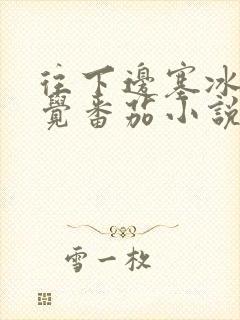 往下邊塞冰
覺番茄小說
雪一枚